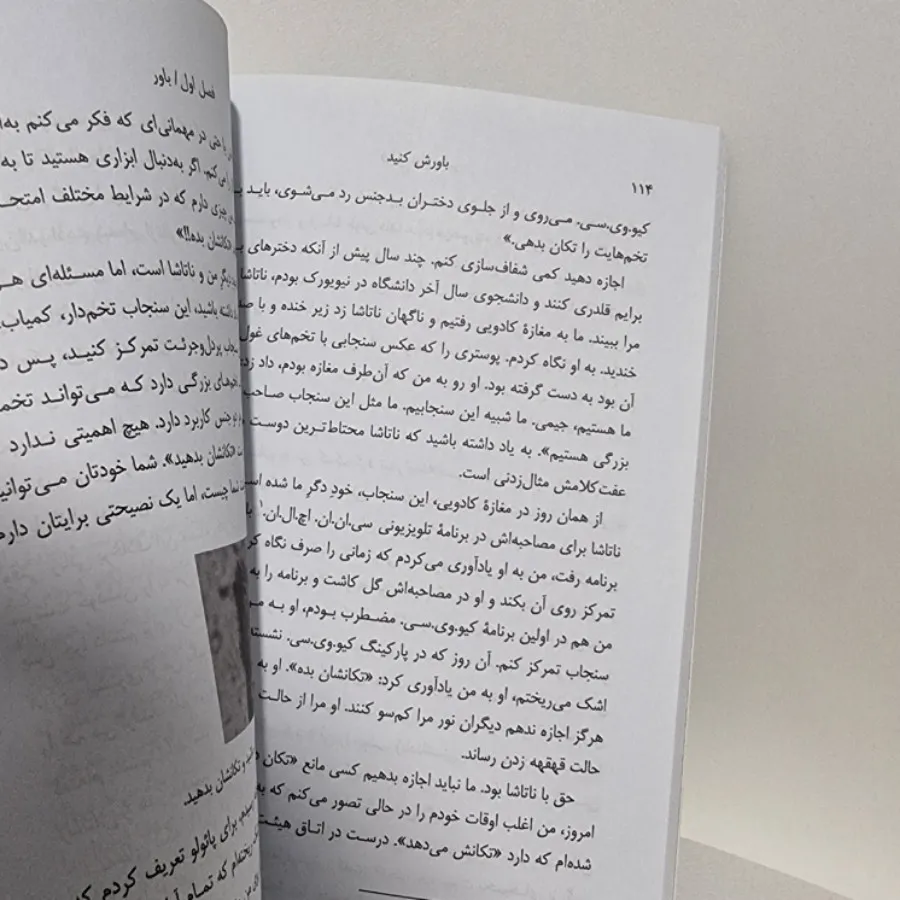 باورش کنید
۱۱۴
کیو.وی.سی. می‌روی و از جلوی دختران بدجنس رد می‌شوی، باید
تخم‌هایت را تکان بدهی.»
اجازه دهید کمی شفاف‌سازی کنم. چند سال پیش از آنکه دخترهای
برایم قلدری کنند و دانشجوی سال آخر دانشگاه در نیویورک بودم، ناتاشا
مرا ببیند. ما به مغازهٔ کادویی رفتیم و ناگهان ناتاشا زد زیر خنده و با
خندید. به او نگاه کردم. پوستری را که عکس سنجابی با تخم‌های غول
آن بود به دست گرفته بود. او رو به من که آن‌طرف مغازه بودم، داد زد:
ما هستیم، جیمی. ما شبیه این سنجابیم. ما مثل این سنجاب صاحب
بزرگی هستیم». به یاد داشته باشید که ناتاشا محتاط‌ترین دوست
عفت‌کلامش مثال‌زدنی است.
از همان روز در مغازهٔ کادویی، این سنجاب، خودِ دگرِ ما شده است
ناتاشا برای مصاحبه‌اش در برنامهٔ تلویزیونی سی.ان.ان. اچ.ال.ان.۱
برنامه رفت، من به او یادآوری می‌کردم که زمانی را صرف نگاه
تمرکز روی آن بکند و او در مصاحبه‌اش گل کاشت و برنامه را به
من هم در اولین برنامهٔ کیو.وی.سی. مضطرب بودم، او به
سنجاب تمرکز کنم. آن روز که در پارکینگ کیو.وی.سی. نشسته
اشک می‌ریختم، او به من یادآوری کرد: «تکانشان بده». او به
هرگز اجازه ندهم دیگران نور مرا کم‌سو کنند. او مرا از حالت
حالت قهقهه زدن رساند.
حق با ناتاشا بود. ما نباید اجازه بدهیم کسی مانع «تکان
امروز، من اغلب اوقات خودم را در حالی تصور می‌کنم که
شده‌ام که دارد «تکانش می‌دهد». درست در اتاق هیئت
فصل اول / باور
در مهمانی‌ای که فکر می‌کنم
اگر به‌دنبال ابزاری هستید تا به
چیزی دارم که در شرایط مختلف
«تکانشان بده!!»
من و ناتاشا است، اما مسئله‌ای
باشید، این سنجاب تخم‌دار، کمیاب
پردل‌وجرئت تمرکز کنید، پس
بزرگی دارد که می‌تواند
جنس کاربرد دارد. هیچ اهمیتی ندارد
«تکانشان بدهید». شما خودتان می‌توانید
چیست، اما یک نصیحتی برایتان
و تکانشان بدهید.
برای پائولو تعریف کردم
که تمام